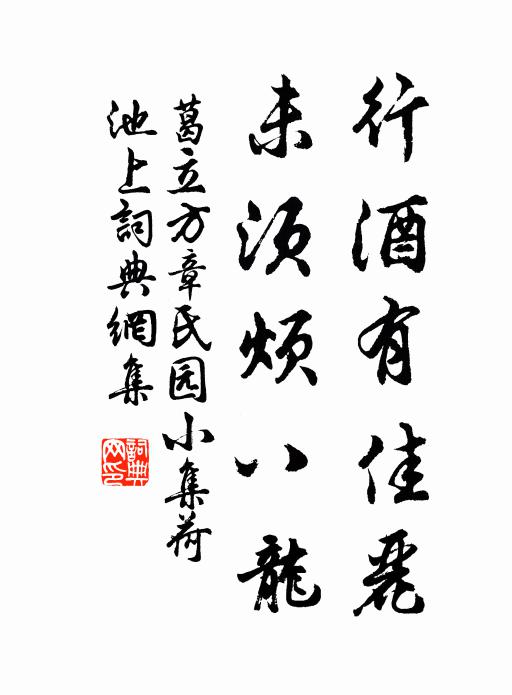 行酒有佳麗
未須煩八龍
葛立方章氏园小集荷
池上詞典網集
詞典網印